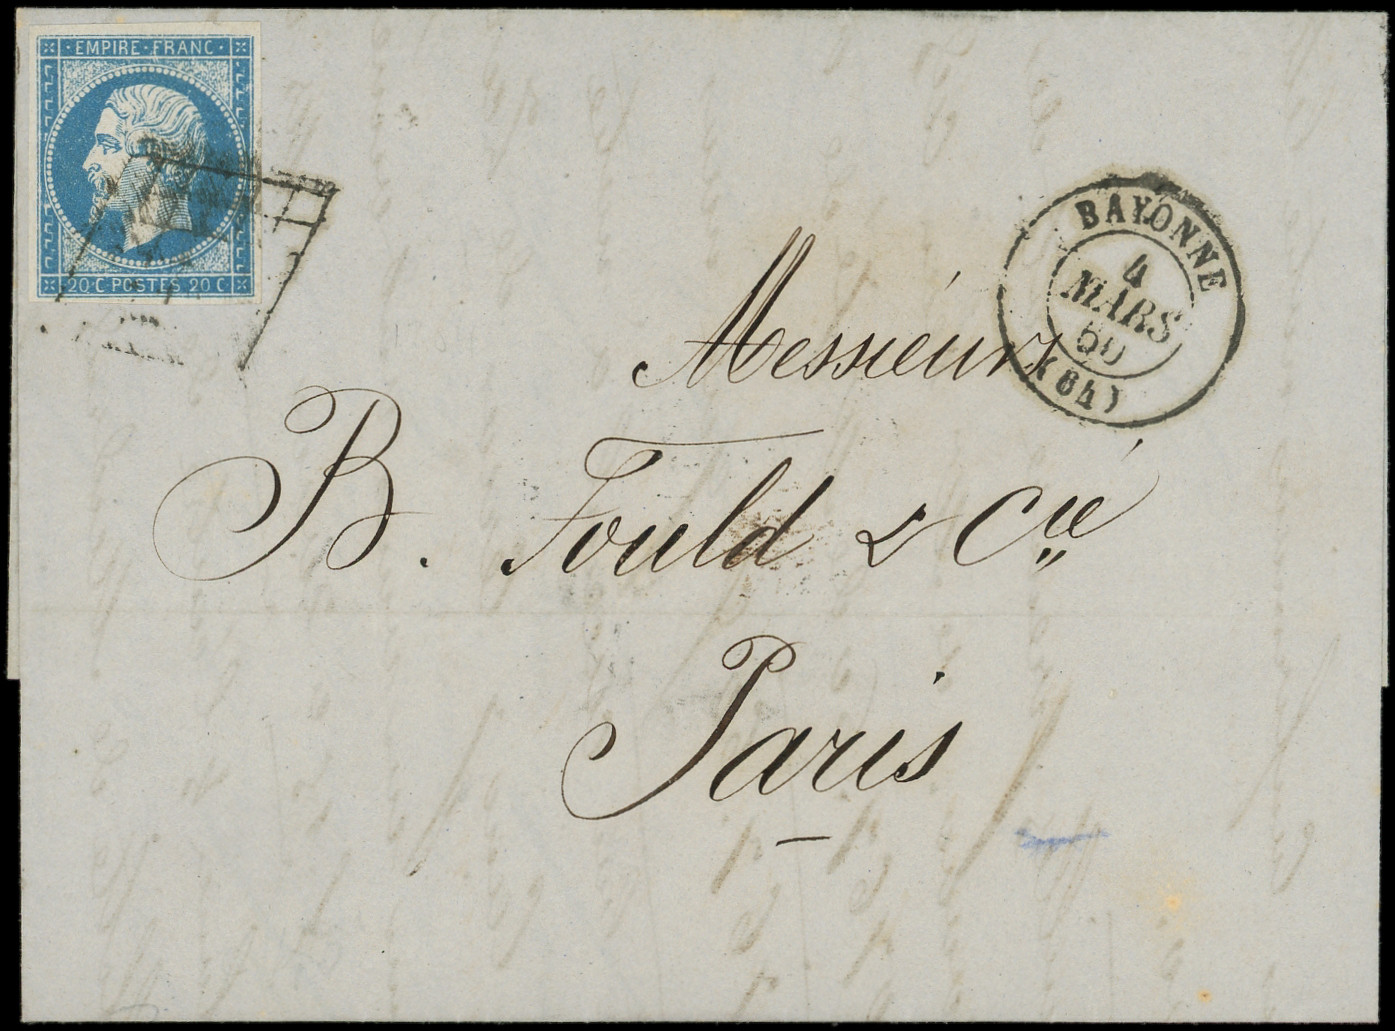 EMPIRE FRANC
20 C POSTES 20 C
BAYONNE
4
MARS
60
(64)
Messieurs
B. Fould & Cie
Paris